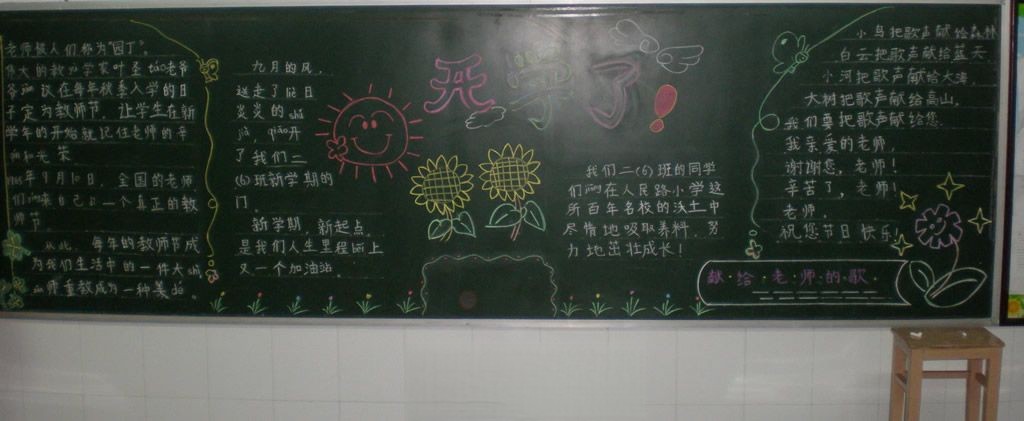 开学了
老师被人们称为"园丁"。
伟大的教育学家叶圣táo老爷
爷 议在每年秋季入学的日
子定为教师节。让学生在新
学年的开始就记住老师的辛
和光荣
1985年9月10日,全国的老师
们 来自己 一个真正的教
师节。
从此,每年的教师节成
为我们生活中的一件大shì
师重教成为一种美
九月的风,
送走了 日
炎炎的shǔ
jià,qiāo开
了我们二
(6)班新学期的
门。
新学期,新起点,
是我们人生里程 上
又一个加油站。
我们二(6)班的同学
们 在人民路小学这
所百年名校的沃土中
尽情地吸取养料,努
力地茁壮成长!
小鸟把歌声献给森林
白云把歌声献给蓝天
小河把歌声献给大海
大树把歌声献给高山。
我们要把歌声献给您
我亲爱的老师,
谢谢您,老师!
辛苦了,老师!
老师,
祝您节日快乐!
献给老师的歌